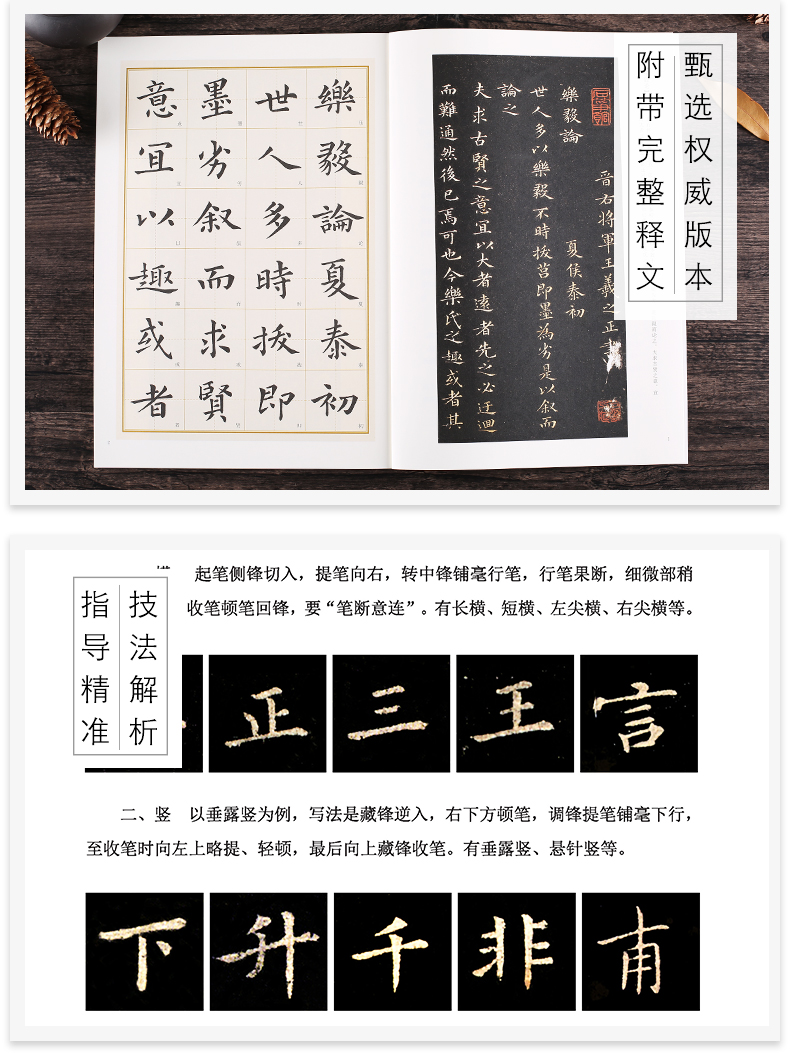 甄选权威版本
附带完整释文
晉右将軍王羲之正書
樂毅論 夏侯泰初
世人多以樂毅不時拔莒即墨為劣是以叙而
論之
夫求古賢之意宜以大者遠者先之必迂迴
而難通然後已焉可也今樂氏之趣或者其
樂毅論夏泰初
世人多時拔即
墨劣叙而求賢
意宜以趣或者
技法解析
指导精准
起笔侧锋切入，提笔向右，转中锋铺毫行笔，行笔果断，细微部稍
收笔顿笔回锋，要“笔断意连”。有长横、短横、左尖横、右尖横等。
正 三 王 言
二、竖 以垂露竖为例，写法是藏锋逆入，右下方顿笔，调锋提笔铺毫下行，
至收笔时向左上略提、轻顿，最后向上藏锋收笔。有垂露竖、悬针竖等。
下 升 千 非 甫